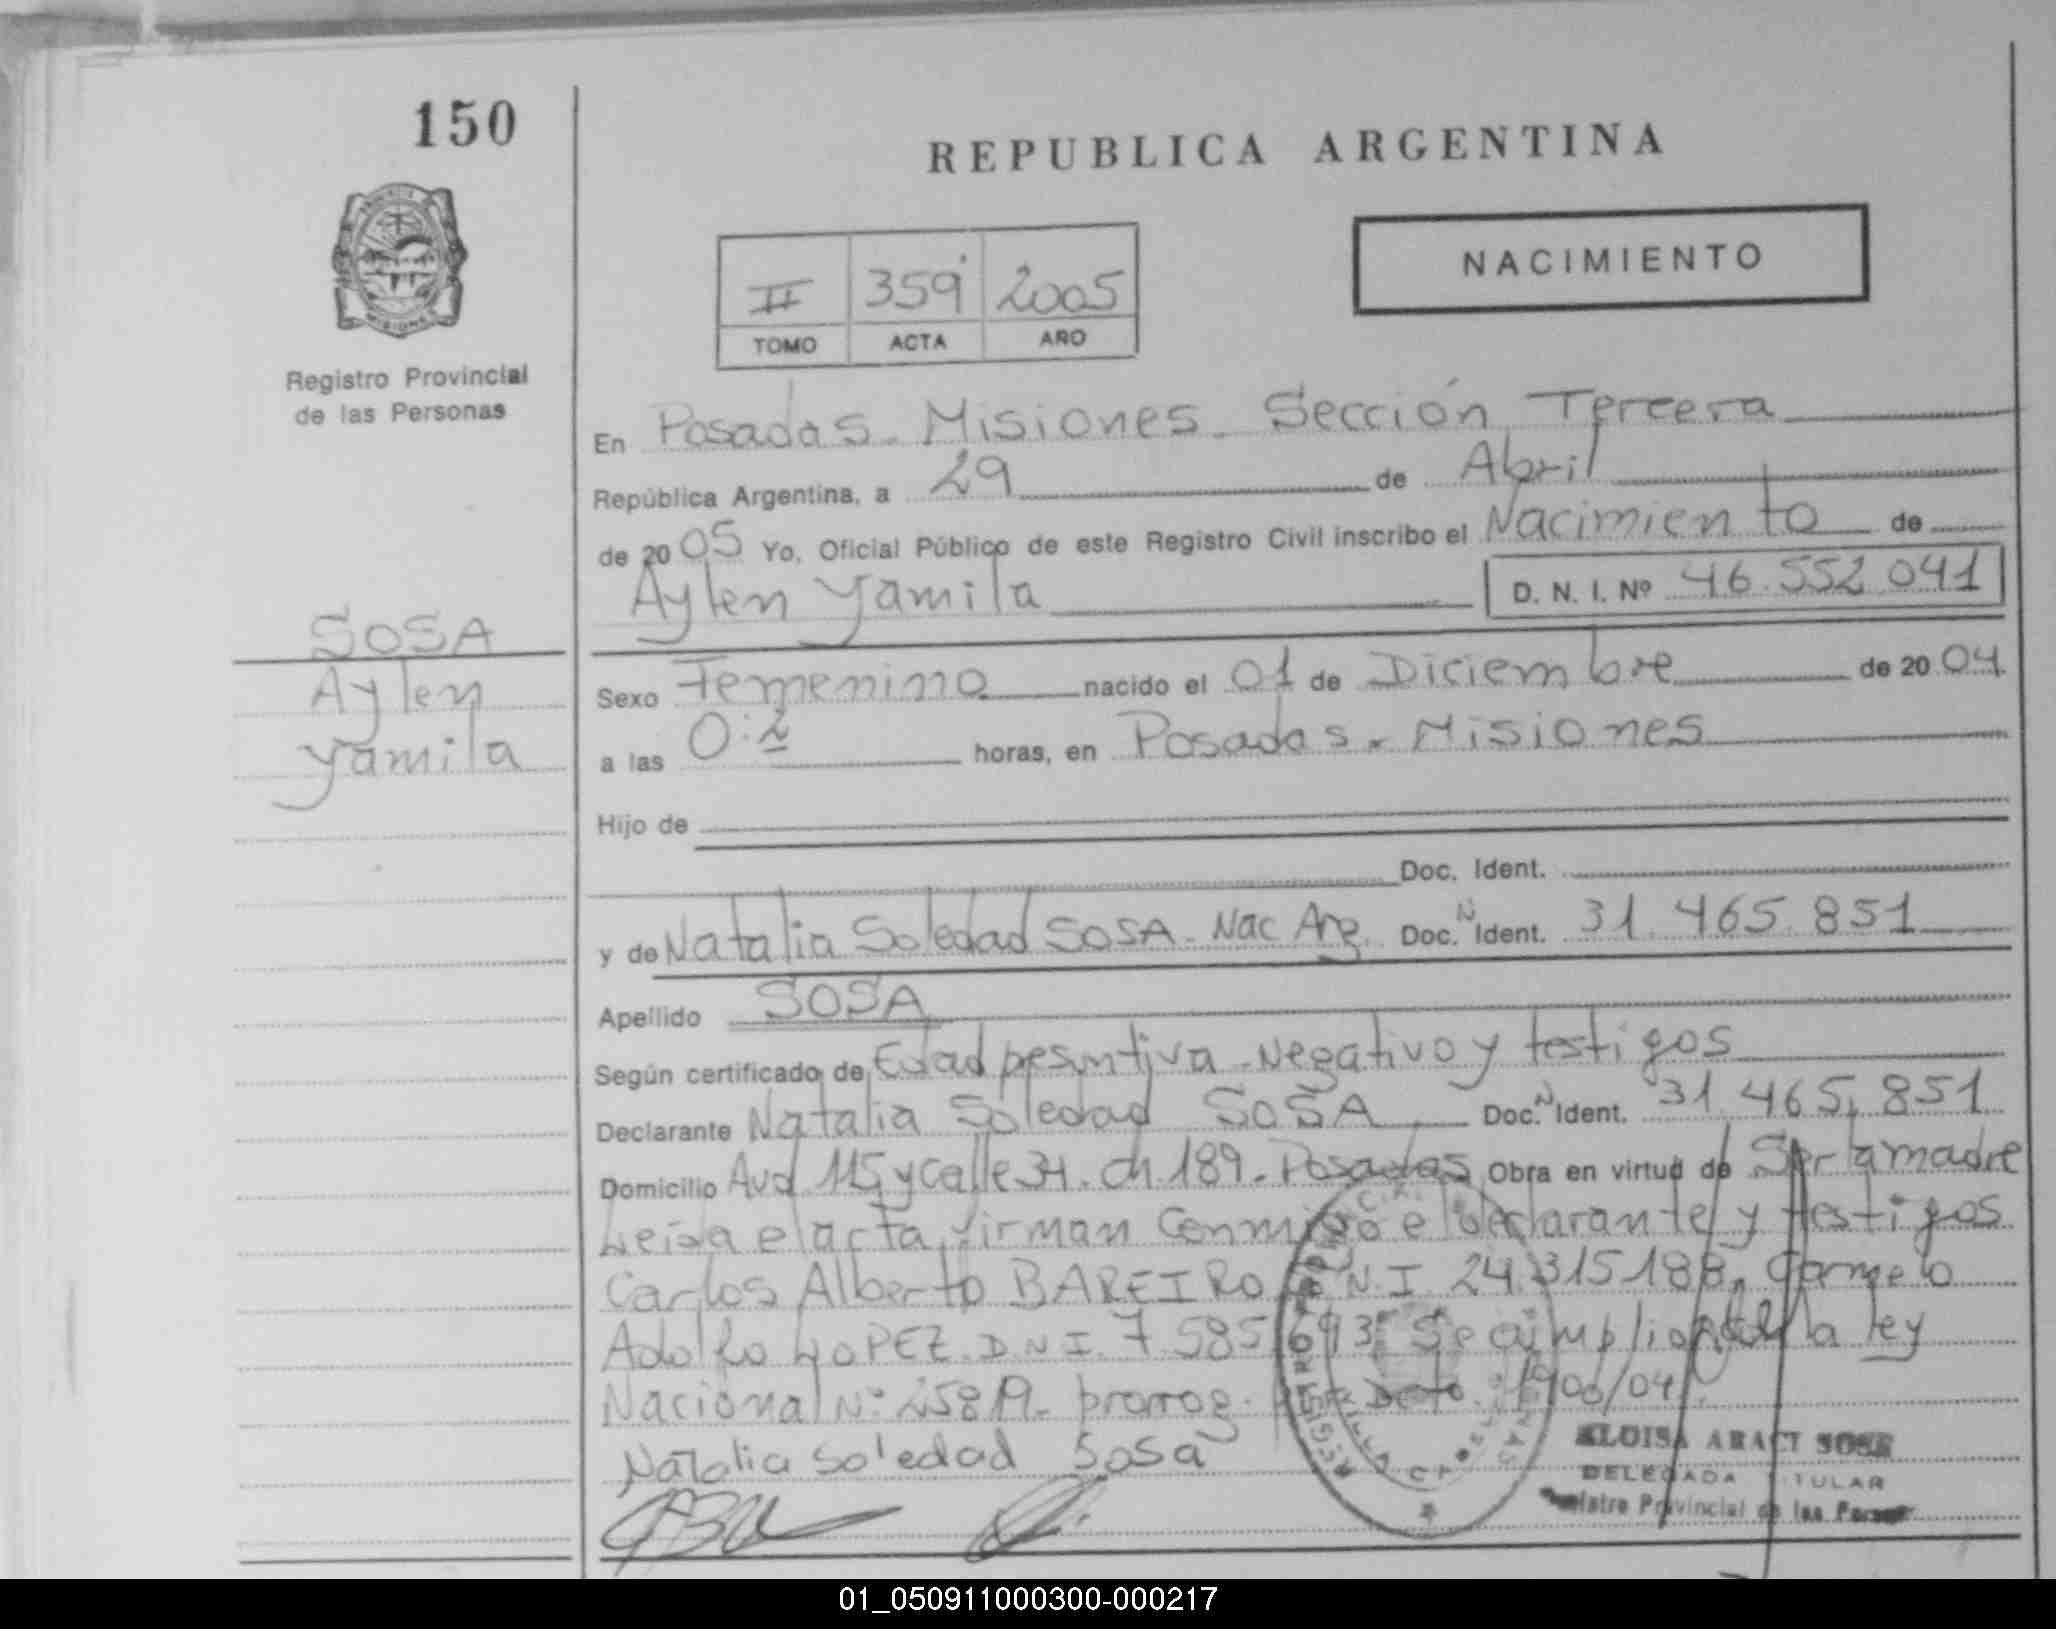 150
REPUBLICA ARGENTINA
NACIMIENTO
II 359 2005
TOMO ACTA AÑO
PROVINCIA
MISIONES
Registro Provincial
de las Personas
En Posadas - Misiones - Sección Tercera
República Argentina, a 29 de Abril
de 2005 Yo, Oficial Público de este Registro Civil inscribo el Nacimiento de
Aylen Yamila D. N. I. Nº 46.552.041
SOSA
Aylen
Yamila
Sexo Femenino nacido el 01 de Diciembre de 2004
a las 0:2 horas, en Posadas - Misiones
Hijo de
Doc. Ident.
y de Natalia Soledad SOSA - Nac Arg. Doc. N Ident. 31.465.851
Apellido SOSA
Según certificado de Edad presuntiva - Negativo y testigos
Declarante Natalia Soledad SOSA Doc. N Ident. 31.465.851
Domicilio Avd 115 y calle 34. ch. 189 - Posadas Obra en virtud de Ser la madre
Leída el acta firman Conmigo el declarante y testigos
Carlos Alberto BAREIRO D.N.I. 24.315.188, Carmelo
Adolfo LOPEZ. D.N.I. 7.585.693 Se cumplio la ley
Nacional Nº 25819 - prorrog. Dcto. 1900/04.
Natalia Soledad Sosa
ELOISA ARACI SOSE
DELEGADA TITULAR
Registro Provincial de las Personas
01_050911000300-000217